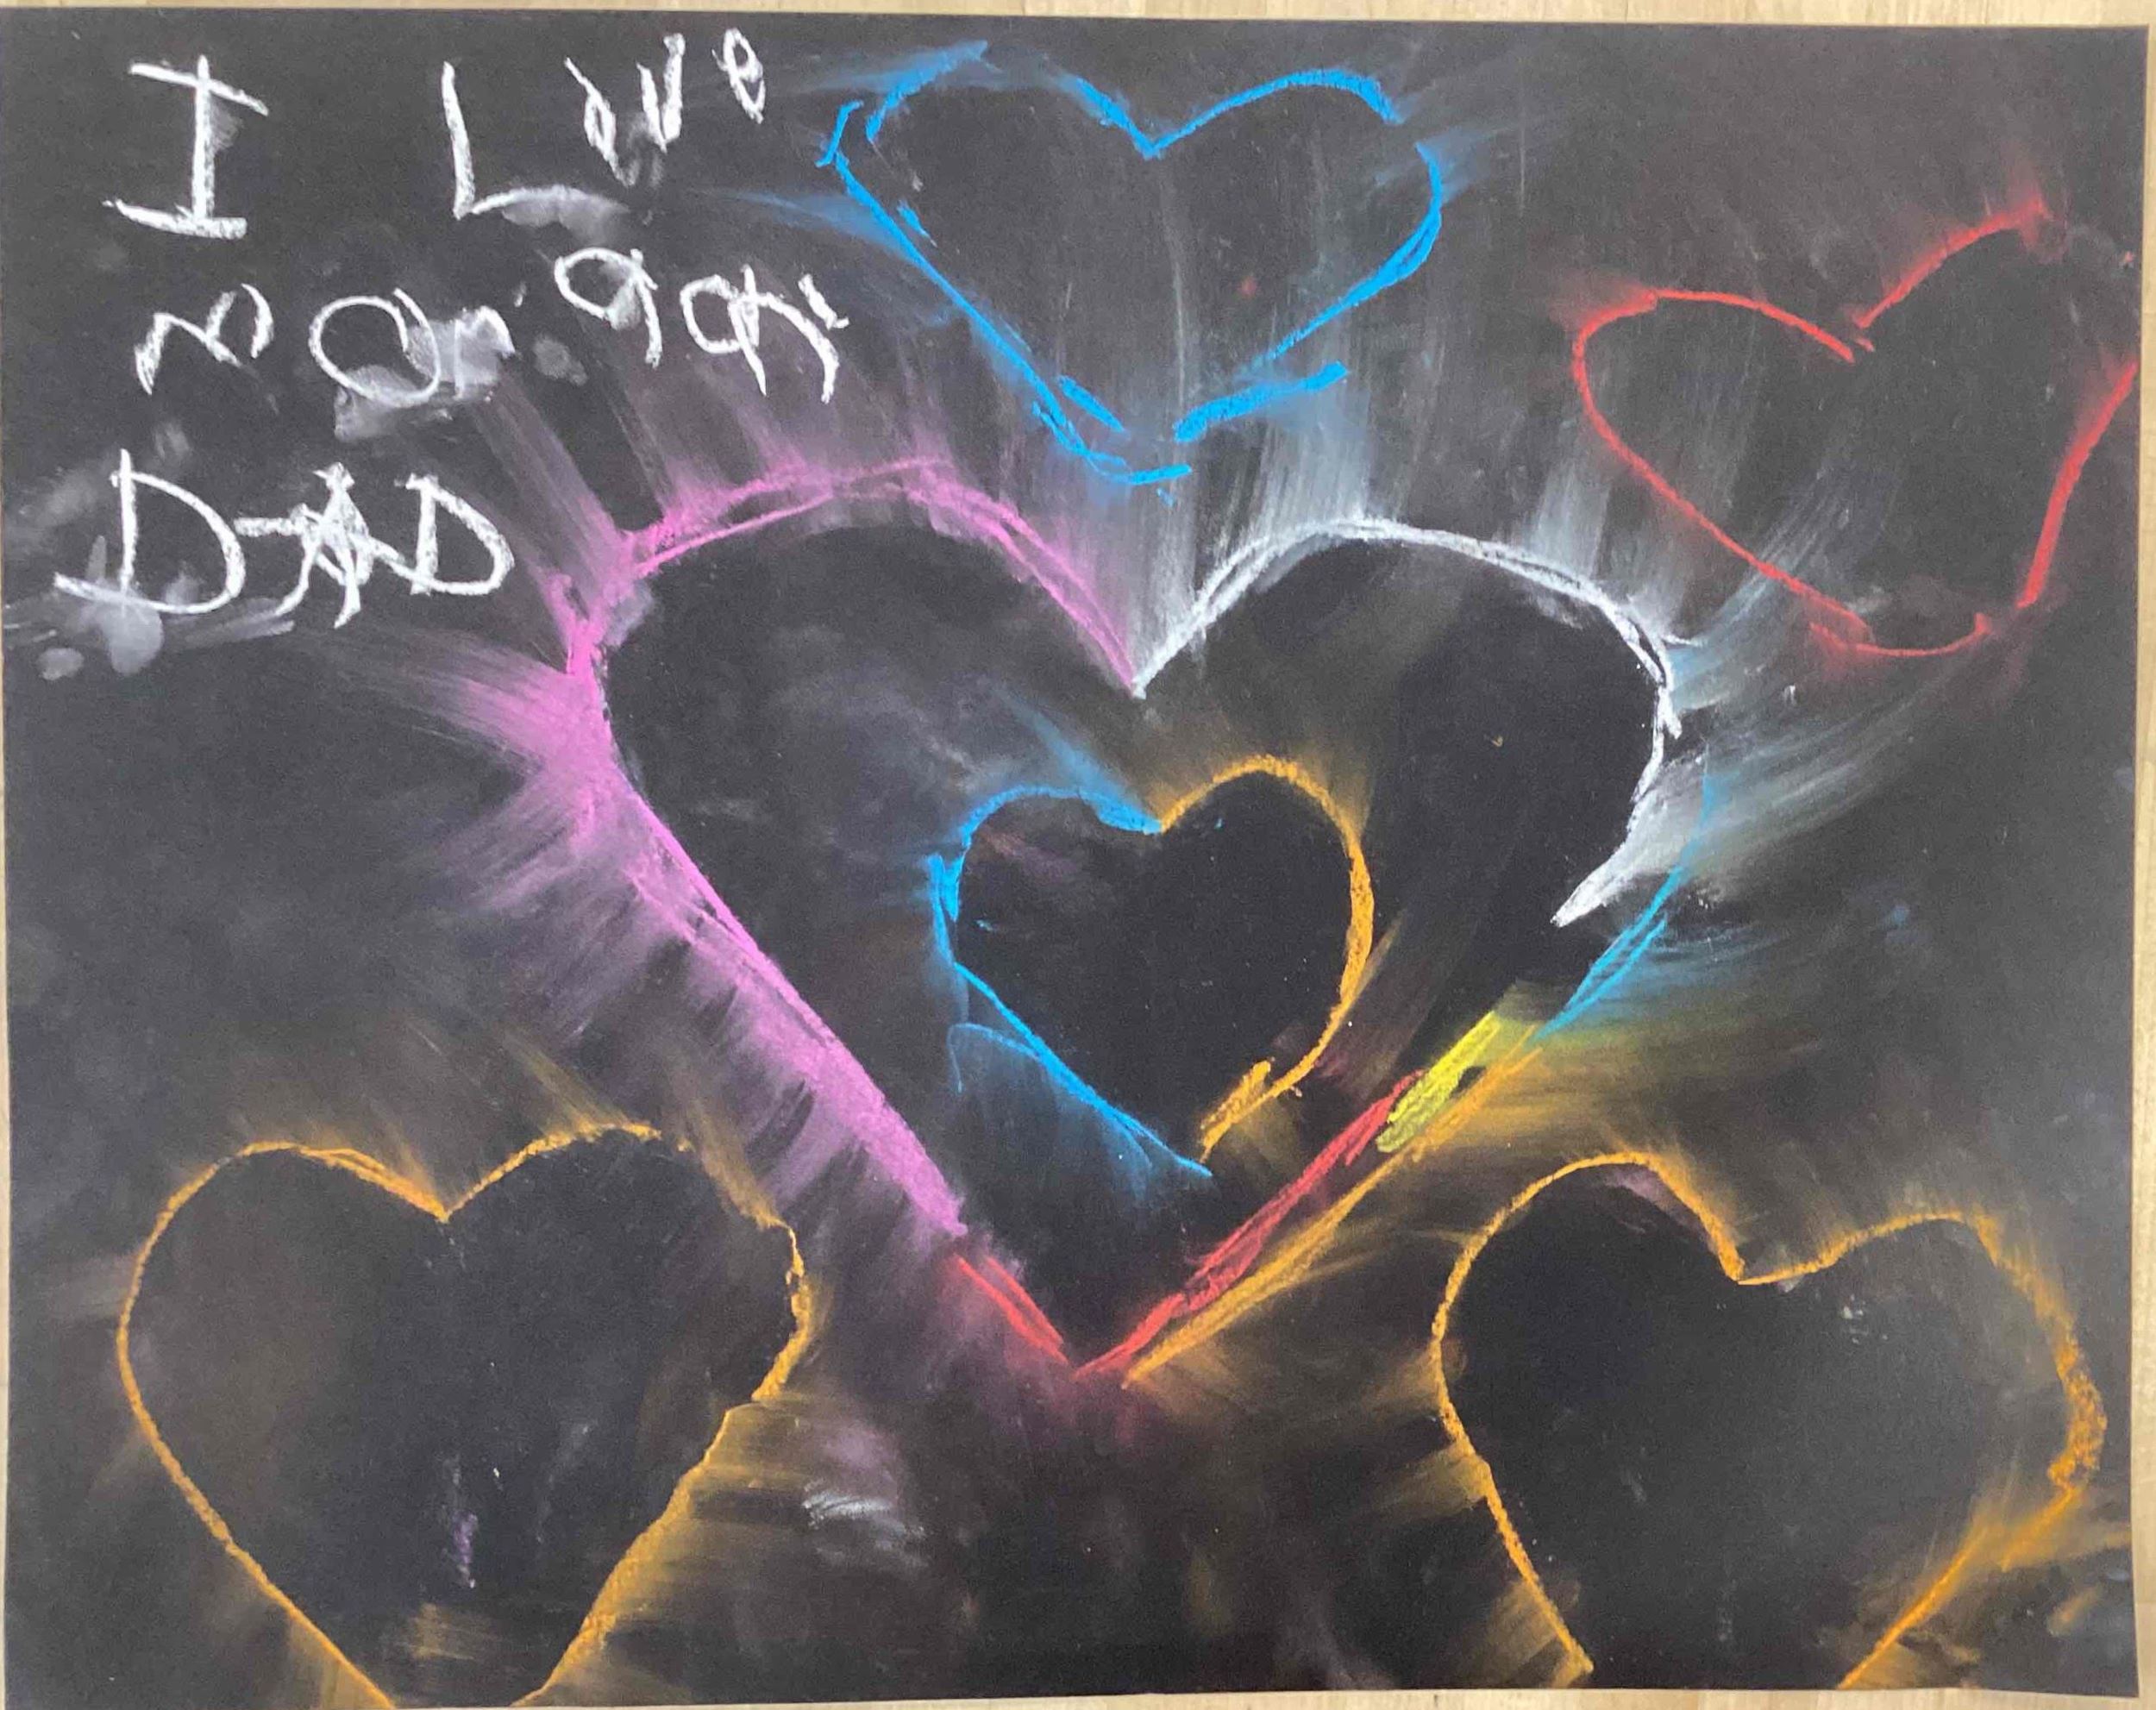 I Love
mom and
DAD